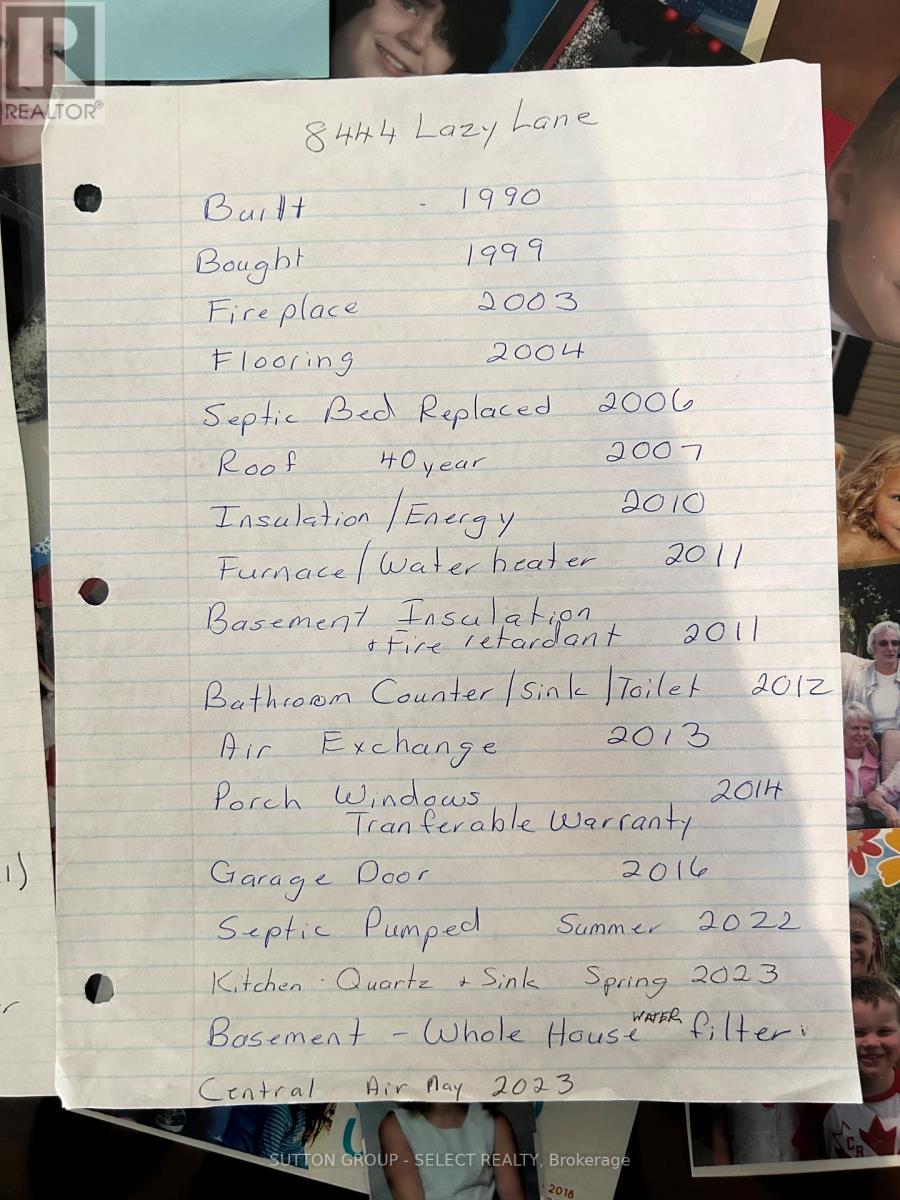 REALTOR®
8444 Lazy Lane
Built - 1990
Bought 1999
Fireplace 2003
Flooring 2004
Septic Bed Replaced 2006
Roof 40 year 2007
Insulation / Energy 2010
Furnace / Water heater 2011
Basement Insulation
+ Fire retardant 2011
Bathroom Counter / Sink / Toilet 2012
Air Exchange 2013
Porch Windows 2014
Tranferable Warranty
Garage Door 2016
Septic Pumped Summer 2022
Kitchen - Quartz + Sink Spring 2023
Basement - Whole House WATER filter
Central Air May 2023
SUTTON GROUP - SELECT REALTY, Brokerage
2018